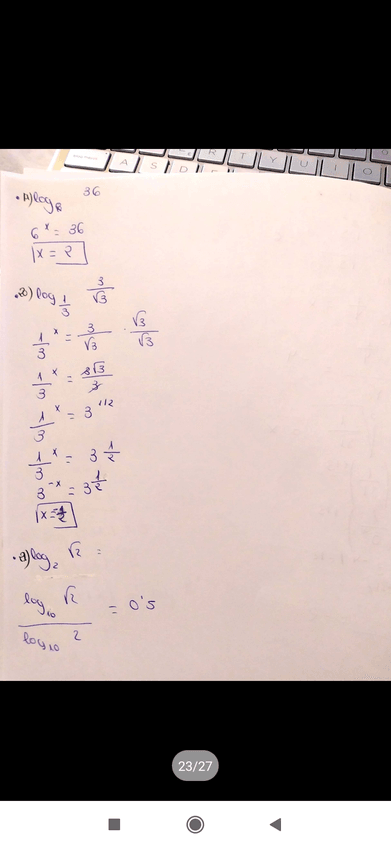 A S D R T Y U I
• A) log₆ 36
6ˣ = 36
x = 2
• B) log 1/3 3/√3
1/3 ˣ = 3/√3 · √3/√3
1/3 ˣ = 3√3/3
1/3 ˣ = 3^1/2
1/3 ˣ = 3^1/2
3^-x = 3^1/2
• a) log₂ √2 =
log₁₀ √2 / log₁₀ 2 = 0'5
23/27